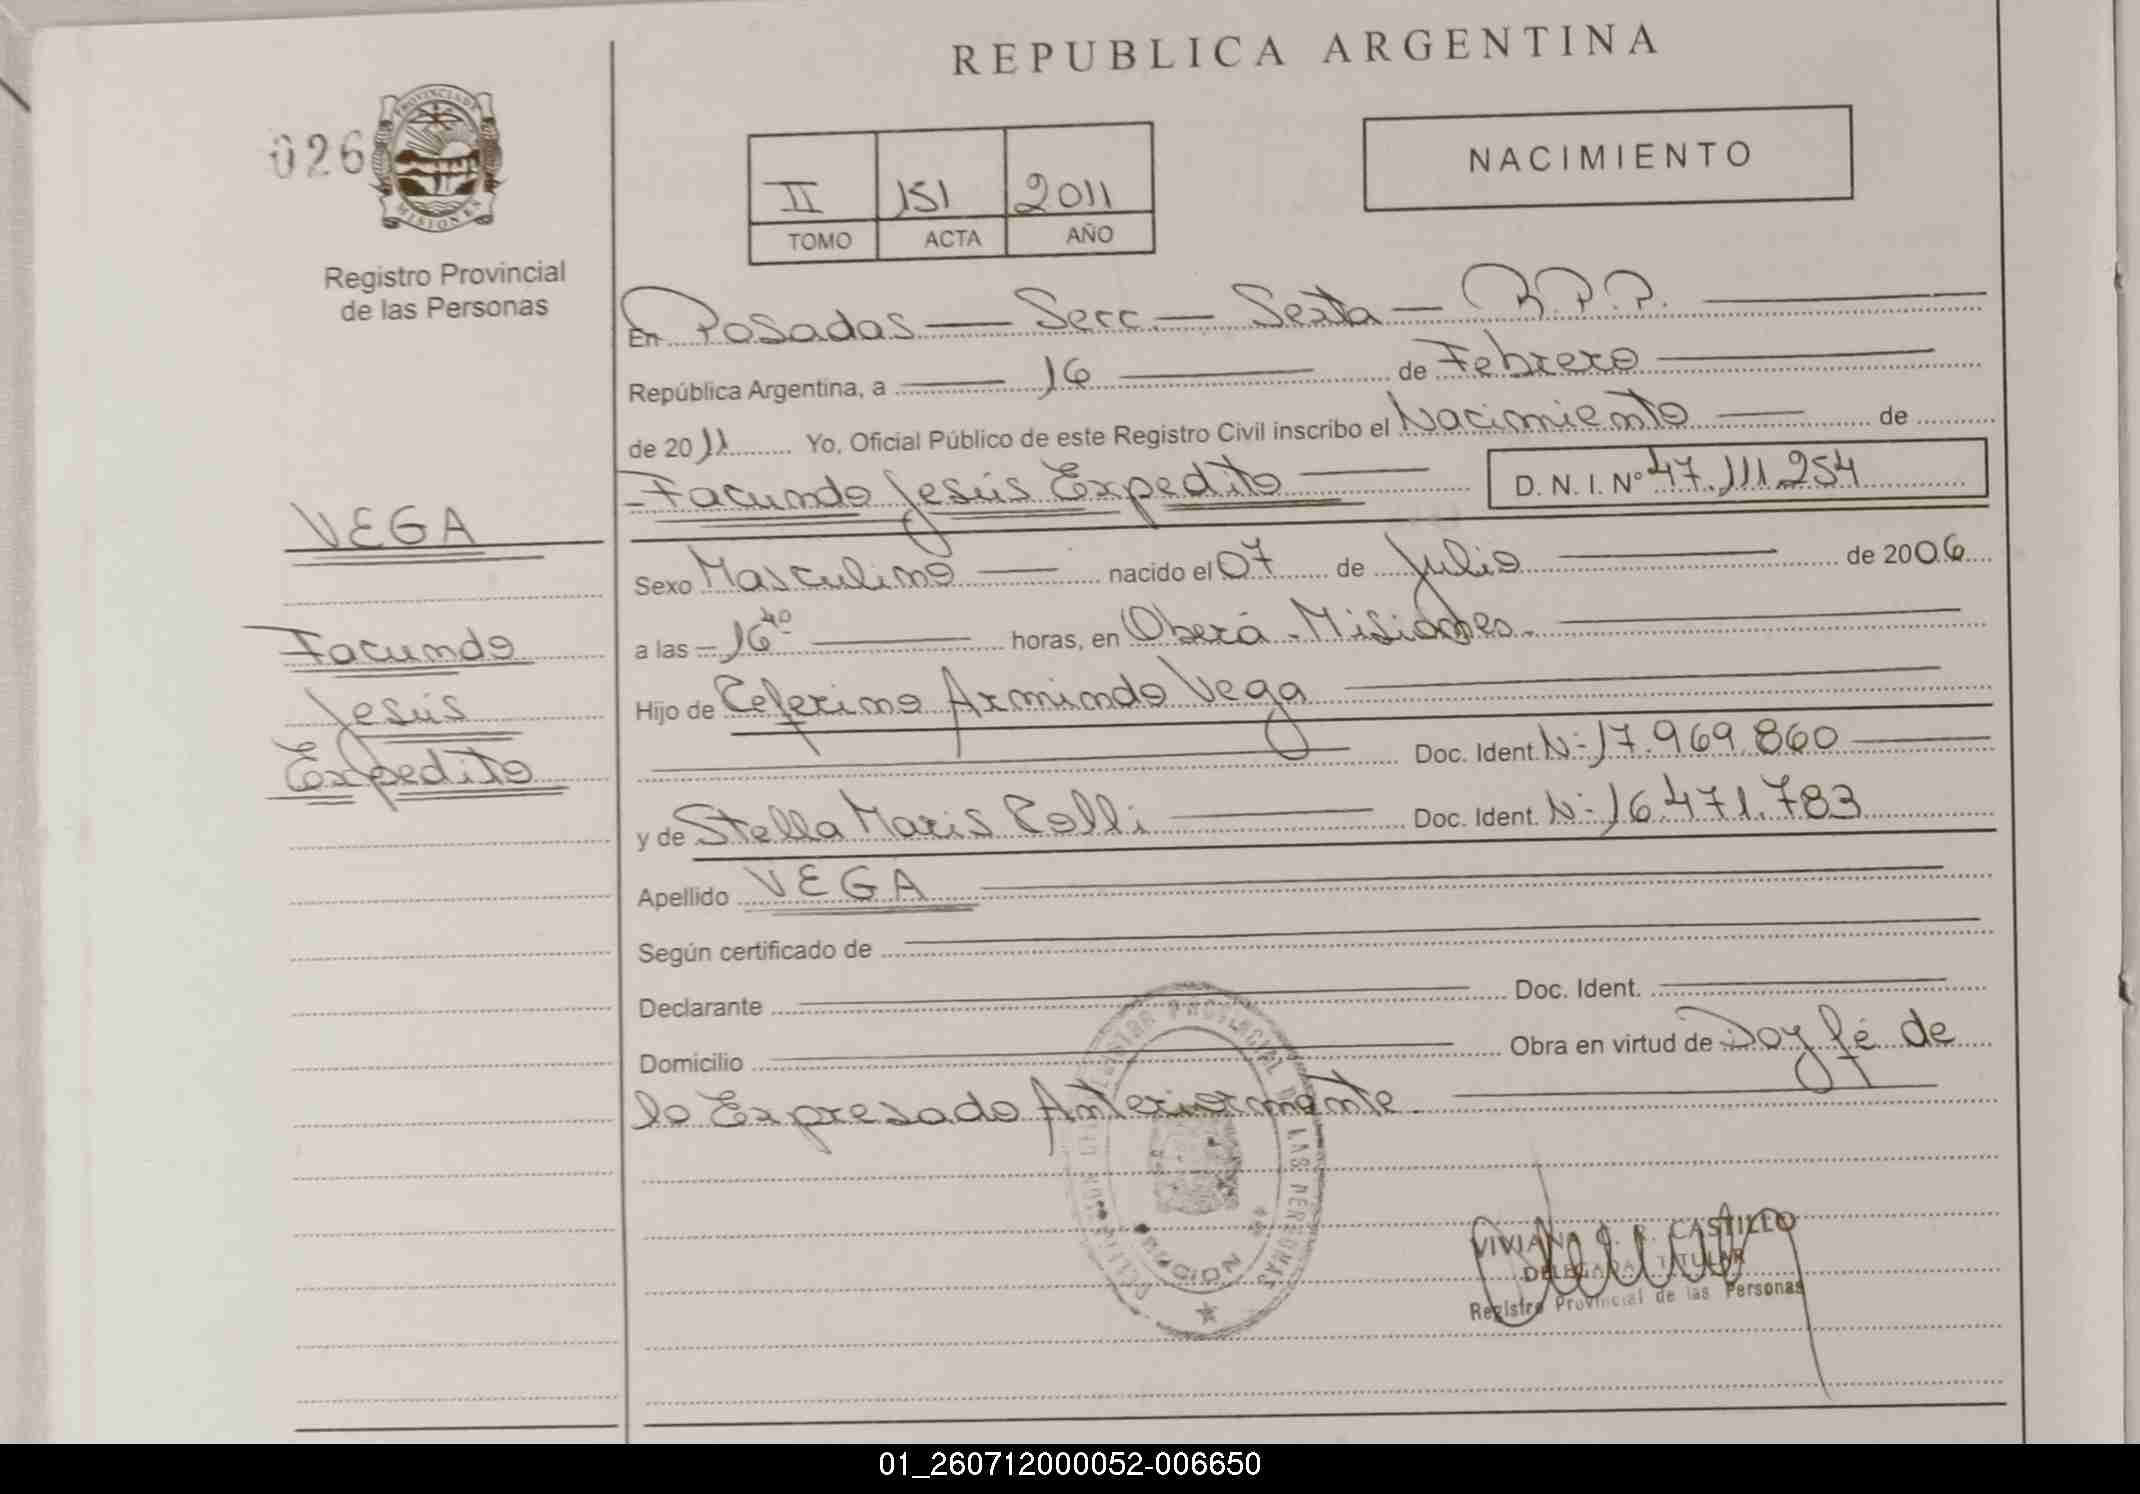 REPUBLICA ARGENTINA
026
PROVINCIA DE
MISIONES
Registro Provincial
de las Personas
II 151 2011
TOMO ACTA AÑO
NACIMIENTO
En Posadas — Secc. — Sexta — R.P.P.
República Argentina, a — 16 — de Febrero
de 2011 Yo, Oficial Público de este Registro Civil inscribo el Nacimiento — de
Facundo Jesús Expedito — D. N. I. Nº 47.111.254
VEGA
Facundo
Jesús
Expedito
Sexo Masculino — nacido el 07 de Julio — de 2006
a las – 16 40 — horas, en Oberá - Misiones.
Hijo de Ceferino Armindo Vega
Doc. Ident. Nº 17.969.860
y de Stella Maris Colli — Doc. Ident. Nº 16.471.783
Apellido VEGA
Según certificado de
Declarante — Doc. Ident.
Domicilio — Obra en virtud de Doy fé de
lo Expresado Anteriormente.
REGISTRO PROVINCIAL DE LAS PERSONAS
VIVIANA CASTILLO
DELEGADA TITULAR
Registro Provincial de las Personas
01_260712000052-006650